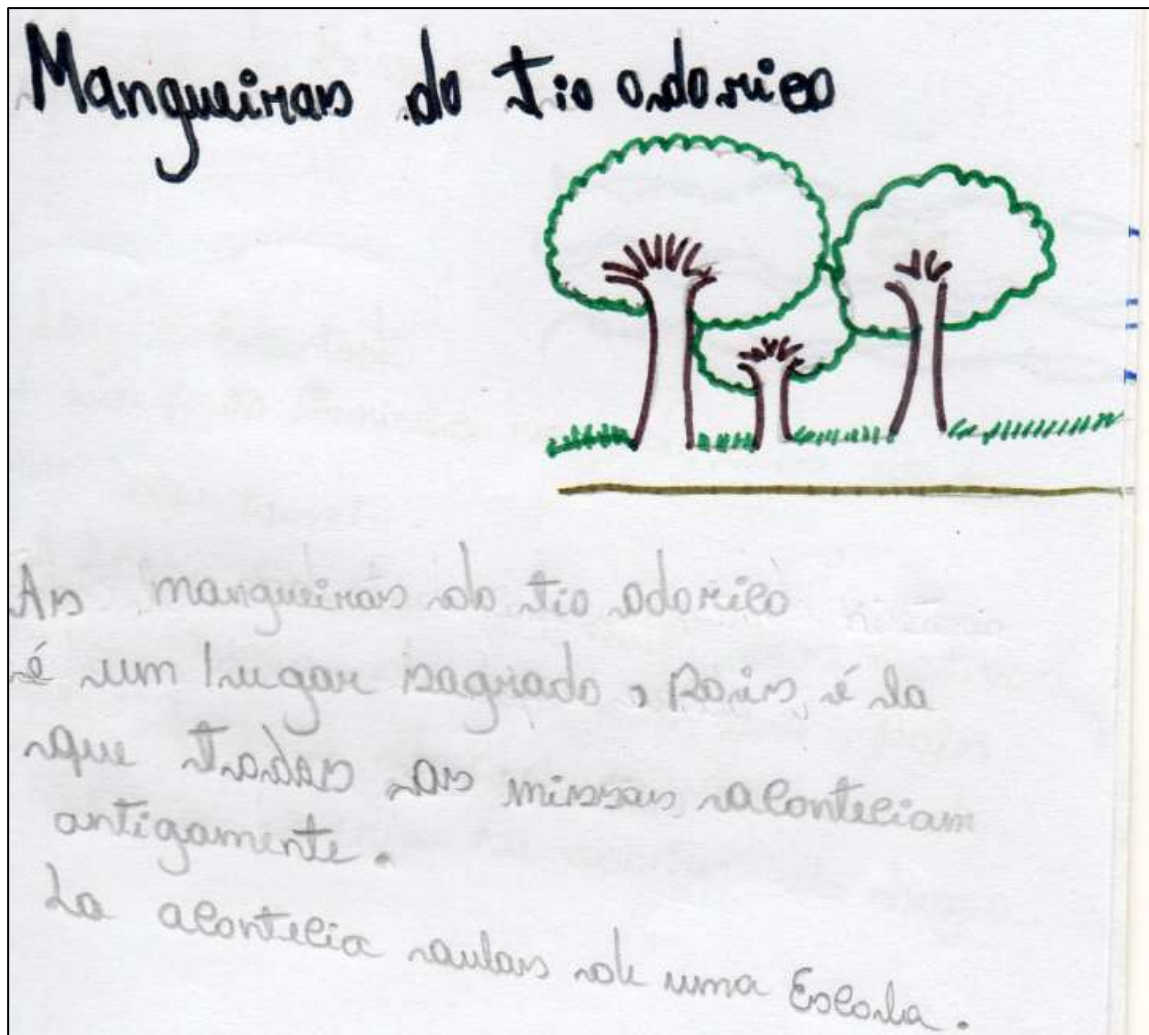 Mangueiras do tio odorico
As mangueiras do tio odorico
é um lugar sagrado. Pois, é la
que todas as missas aconteciam
antigamente.
La acontecia aulas de uma Escola.